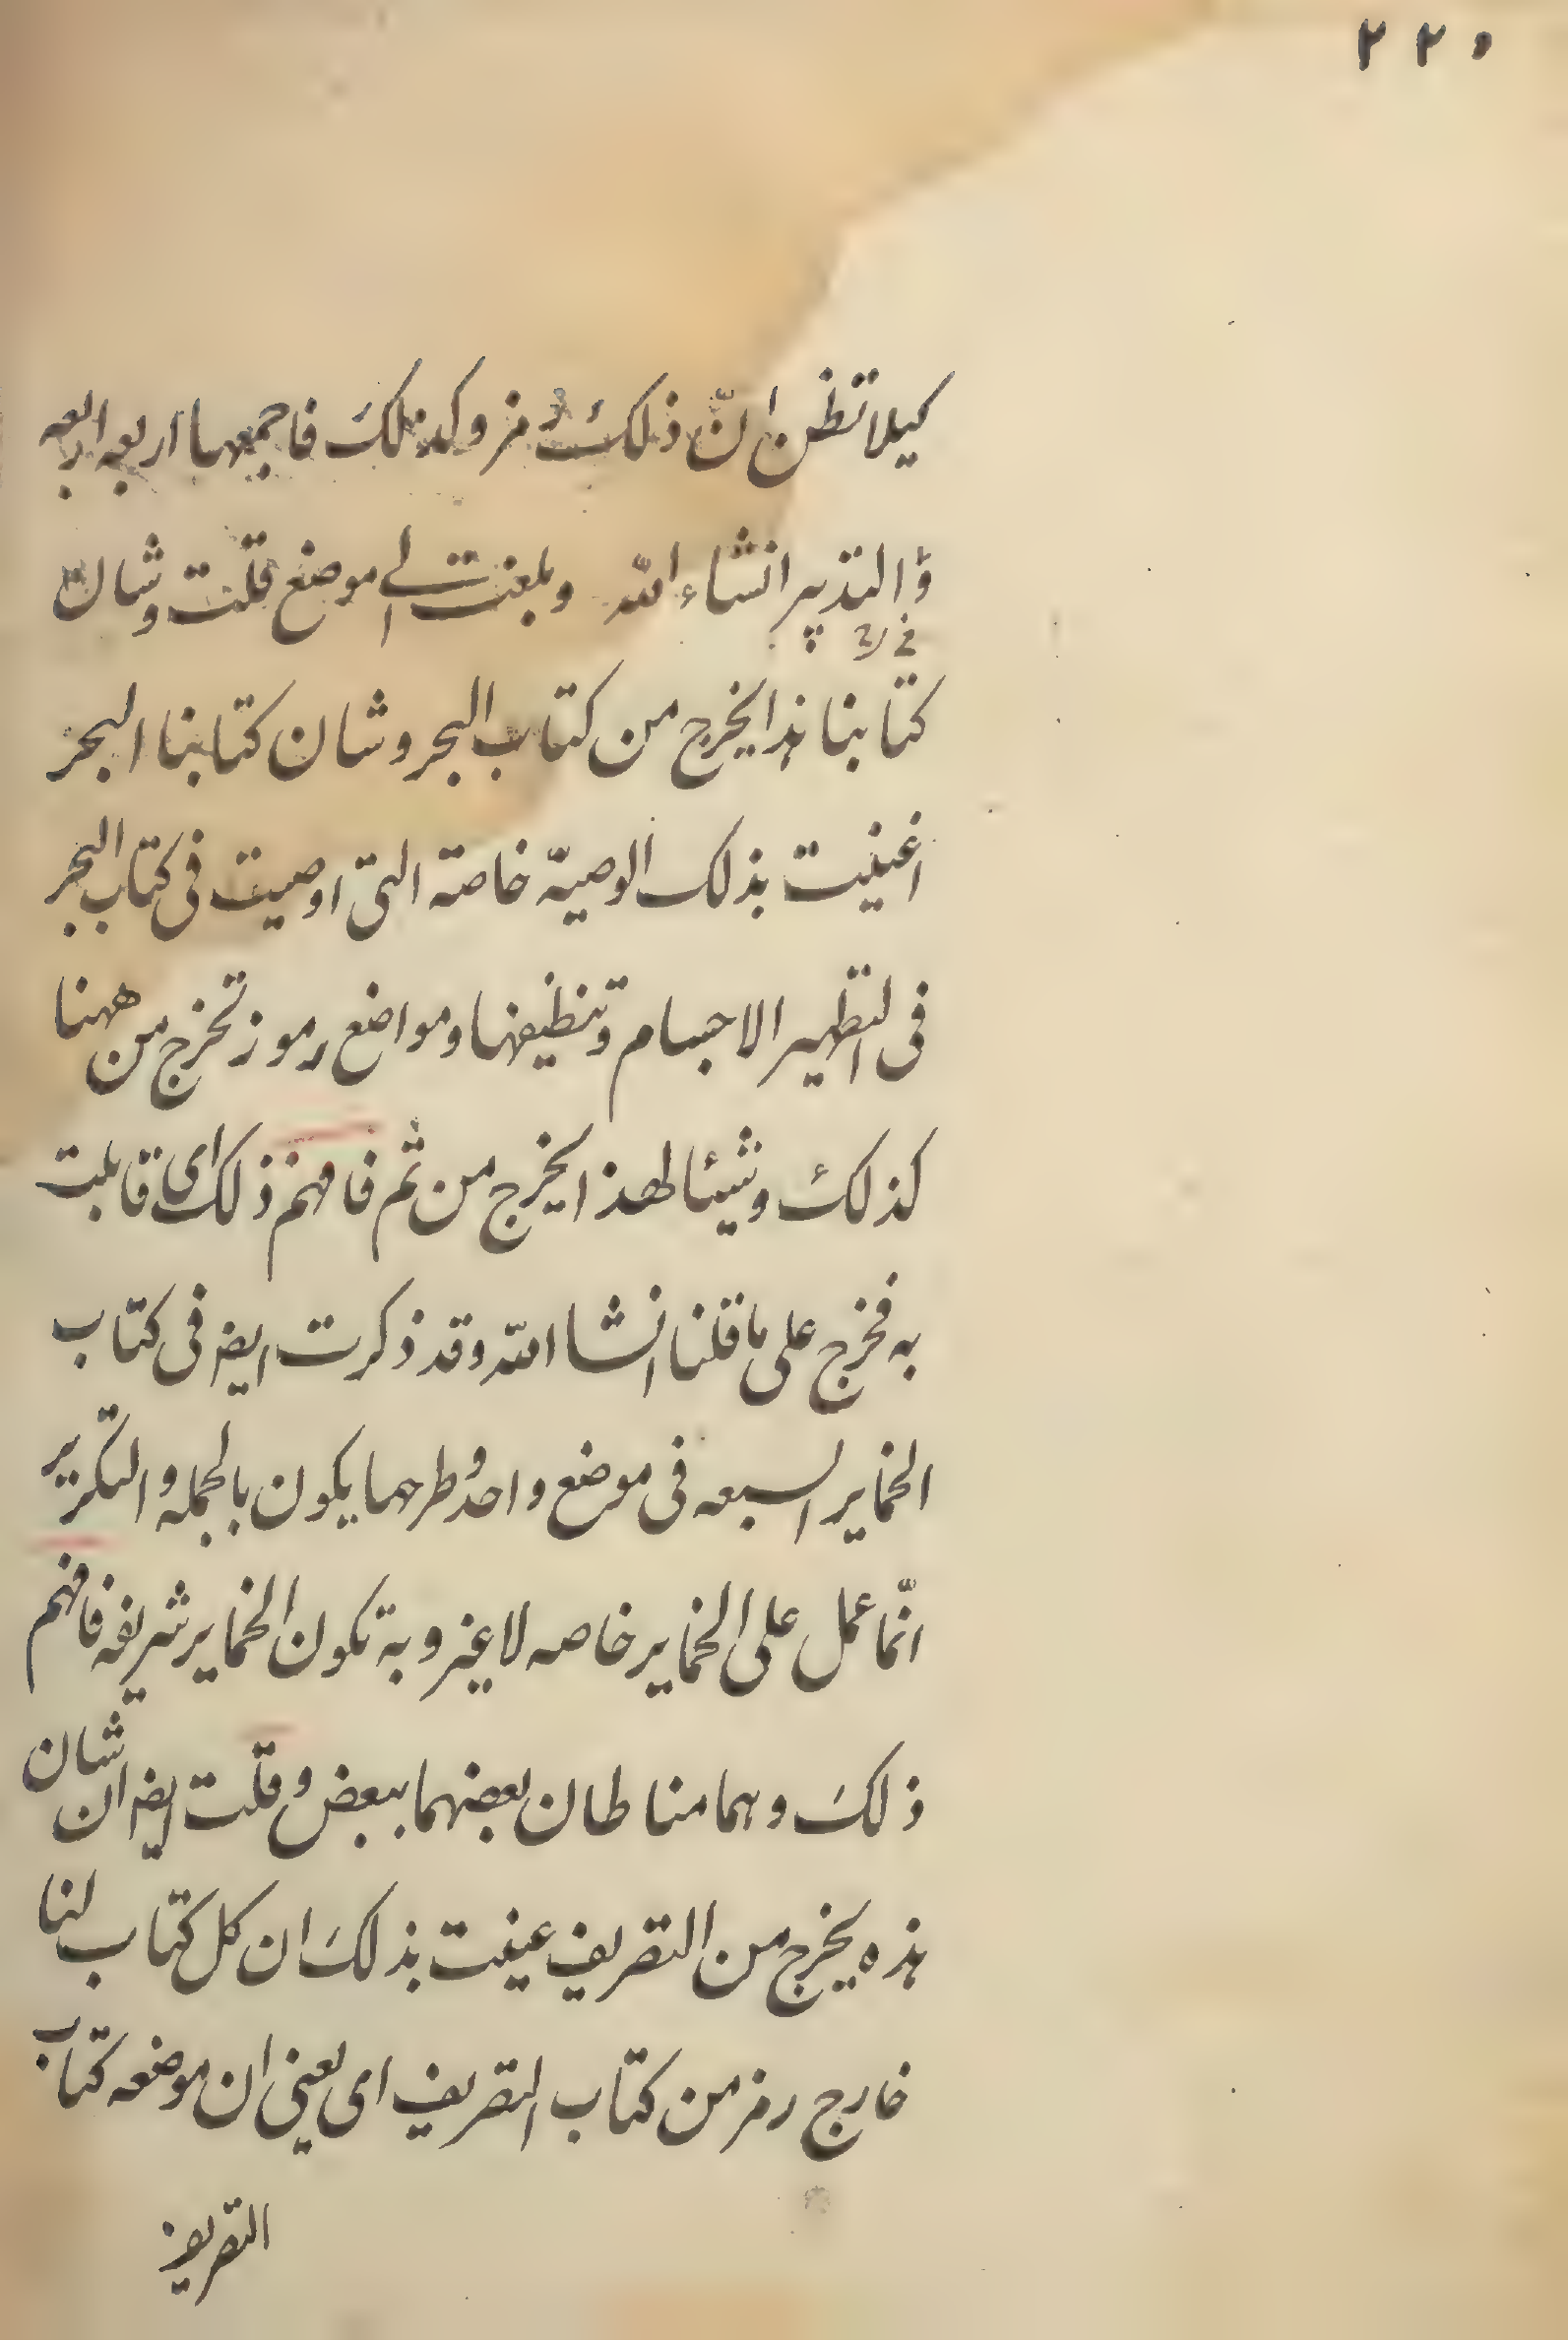 ٢٢٠
كيلا تظن انّ ذلك رمز وكذلك فاجمعها اربعه اربعه
والتدبير انشاء الله وبلغت الى موضع قلت وشان
كتابنا هذا يخرج من كتاب البحر وشان كتابنا البحر
اعنيت بذلك الوصيّه خاصة التى اوصيت فى كتاب البحر
فى التطهير الاجسام وتنظيفها ومواضع رموز تخرج من ههنا
كذلك وشيئا لهذا يخرج من ثم فافهم ذلك اى قابلت
به فخرج على ما قلنا انشا الله وقد ذكرت ايضا فى كتاب
الخماير السبعه فى موضع واحد وطرحهما يكون بالجمله والتكرير
انّما عمل على الخماير خاصه لا غير وبه تكون الخماير شريفه فافهم
ذلك وهما مناطان بعضهما ببعض وقلت ايضا ان شان
هذه يخرج من التصريف عنيت بذلك ان كل كتاب لنا
خارج رمز من كتاب التصريف اى يعنى ان موضعه كتاب
التصريف